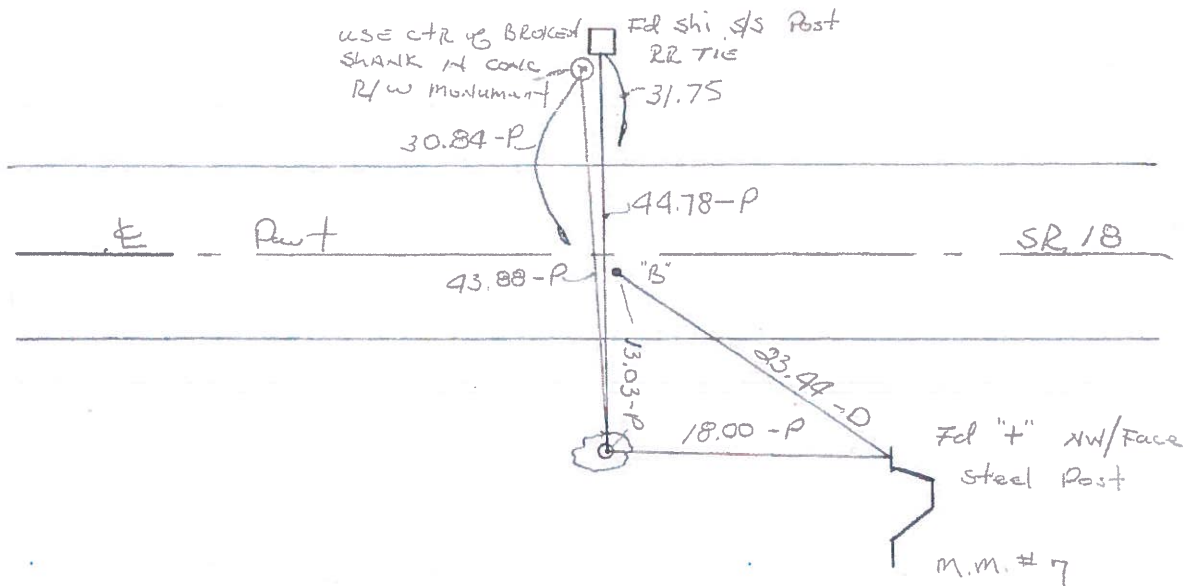 USE CtR of BROKEN
SHANK IN CONC
R/W Monument
Fd Shi S/S Post
RR TIE
31.75
30.84-P
44.78-P
℄
Pavt
SR 18
43.88-P
"B"
13.03-P
23.44-D
18.00-P
Fd "+" NW/Face
Steel Post
M.M. # 7